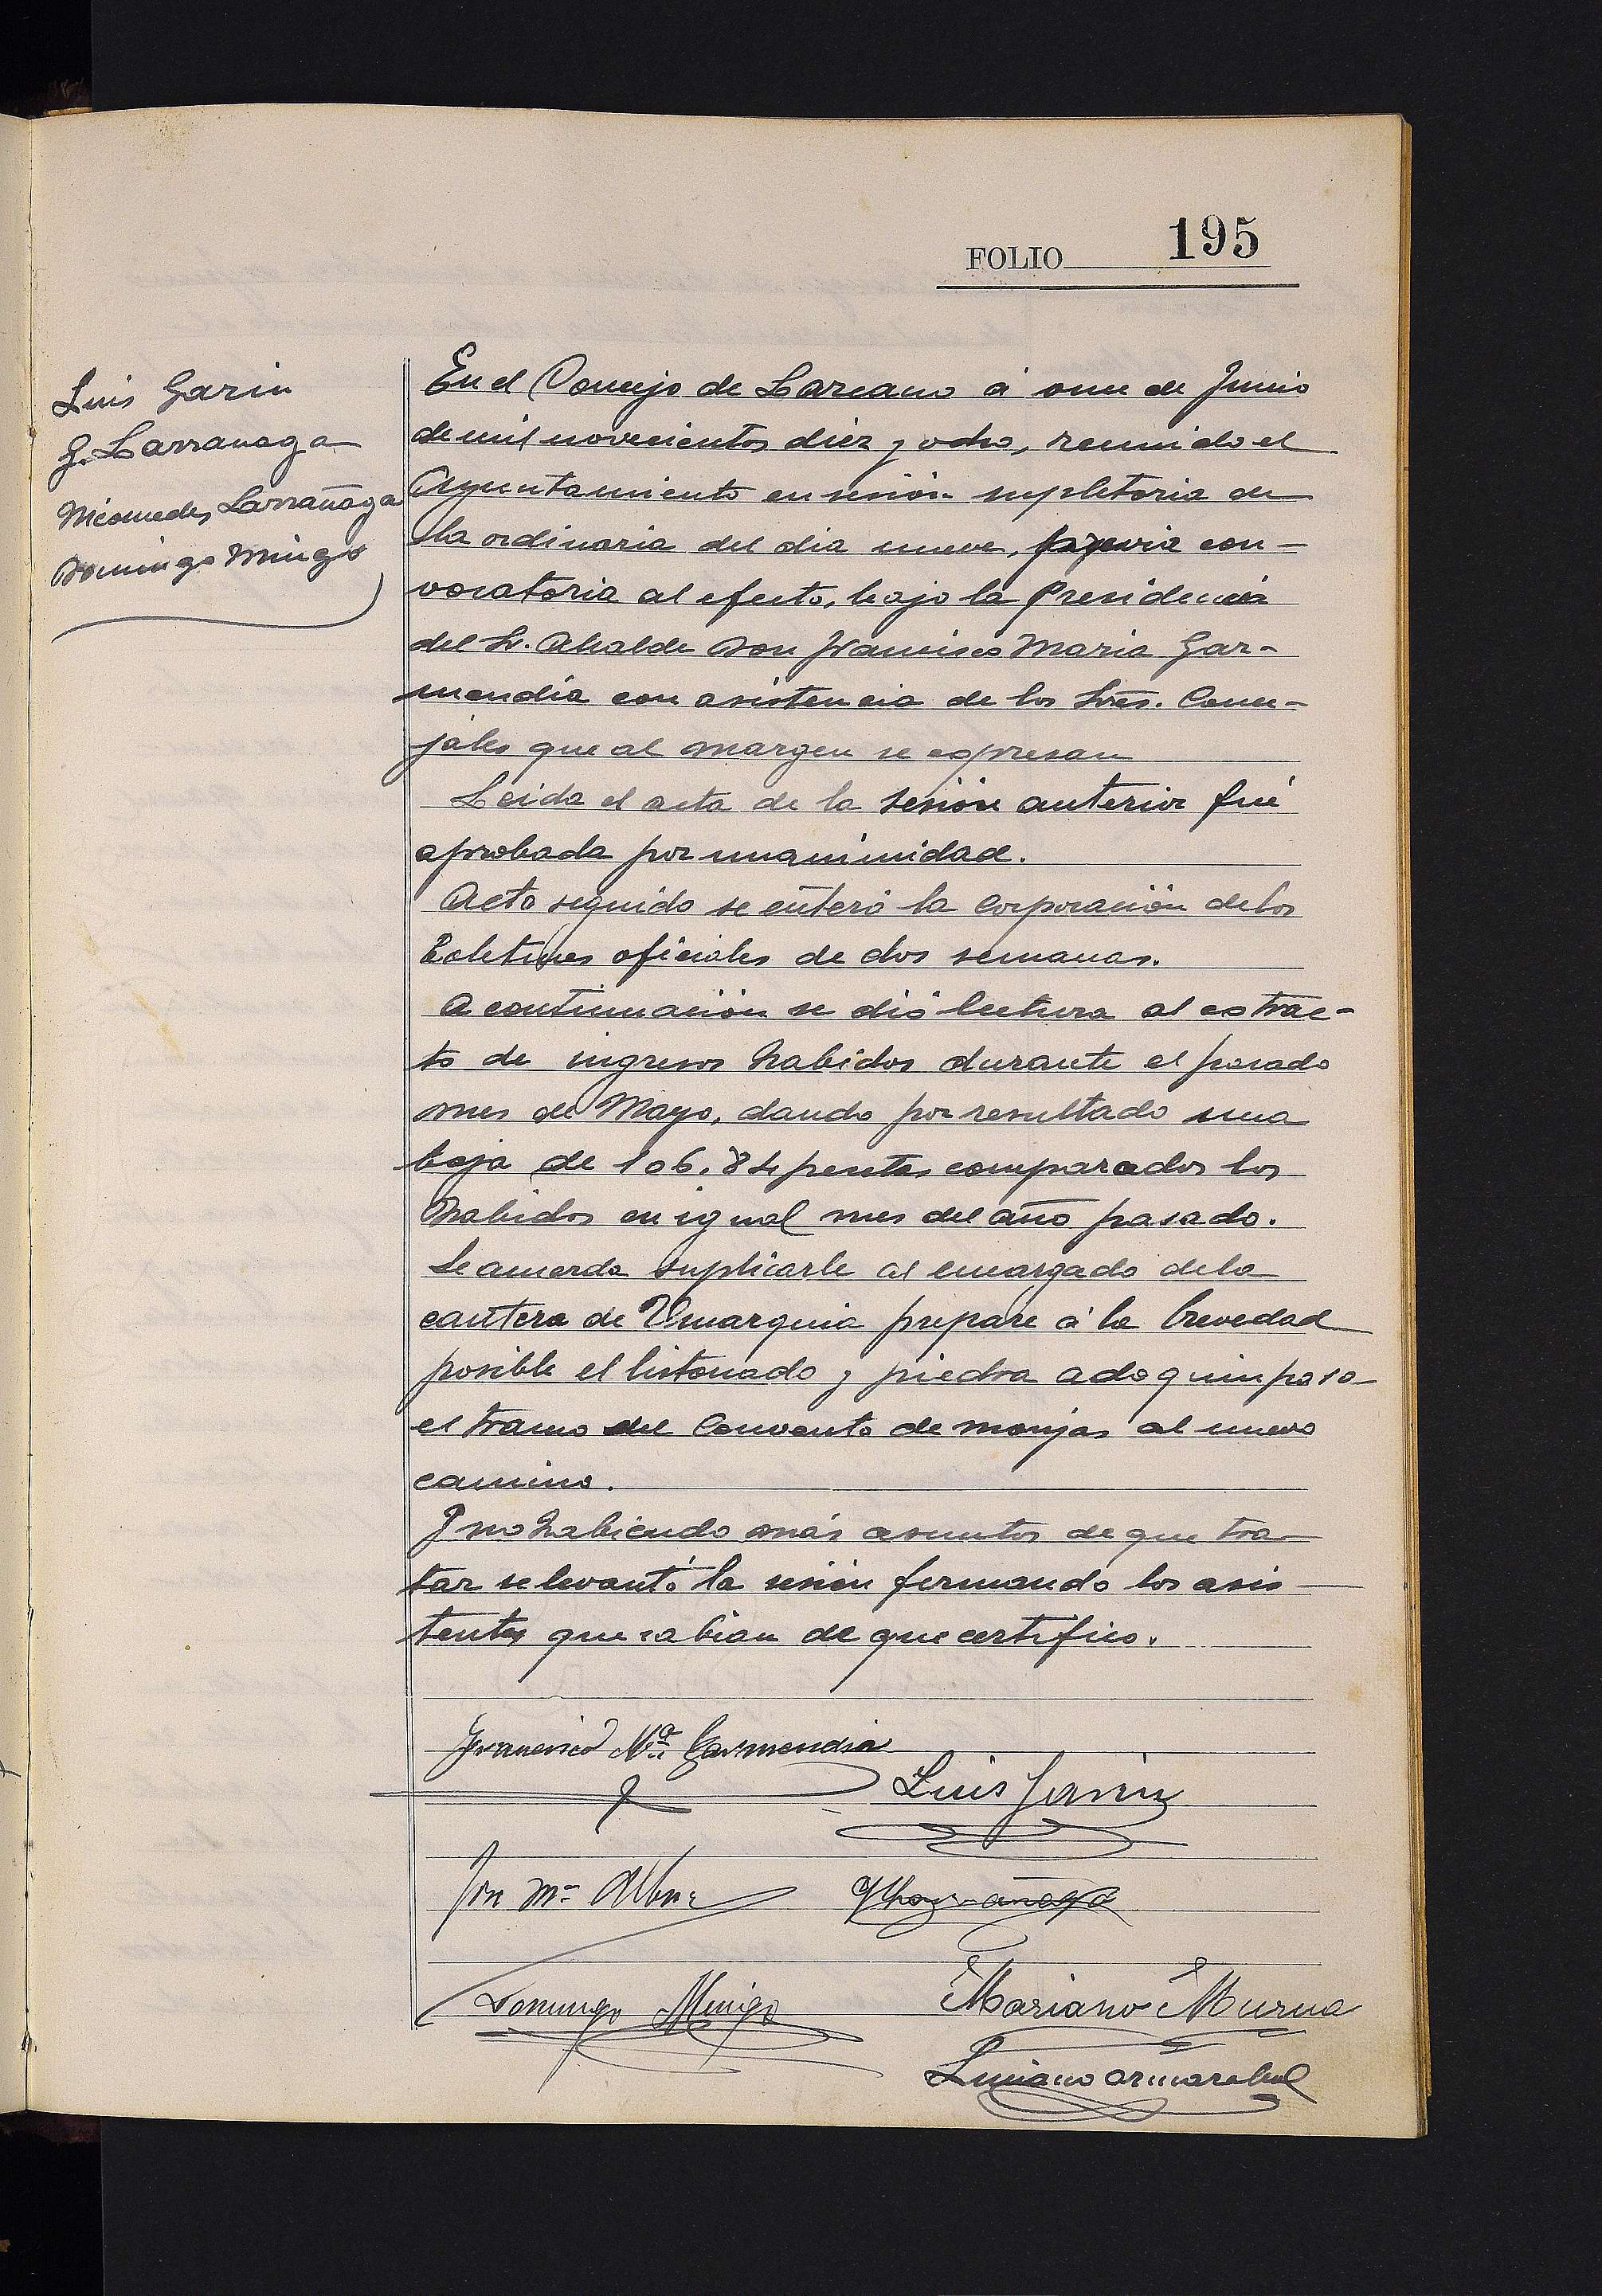 FOLIO 195
Luis Garin
J. Larrañaga
Nicomedes Larrañaga
Domingo Mingo
En el Concejo de Lazcano á once de Junio
de mil novecientos diez y ocho, reunido el
Ayuntamiento en sesión supletoria de
la ordinaria del dia nueve, previa con-
vocatoria al efecto, bajo la Presidencia
del Sr. Alcalde Don Francisco Maria Gar-
mendia con asistencia de los Sres. Conce-
jales que al margen se expresan
Leida el acta de la sesión anterior fué
aprobada por unanimidad.
Acto seguido se enteró la Corporación de los
Boletines oficiales de dos semanas.
A continuación se dió lectura al extrac-
to de ingresos habidos durante el pasado
mes de Mayo, dando por resultado una
baja de 106,84 pesetas comparados los
habidos en igual mes del año pasado.
Se acuerda suplicarle al encargado de la
cantera de prepare á la brevedad
posible el listonado y piedra adoquin para
el tramo del Convento de monjas al nuevo
camino.
Y no habiendo más asuntos de que tra-
tar se levantó la sesión firmando los asis-
tentes que sabian de que certifico.
Francisco Mª Garmendia
Luis Garin
Jose Mª
Domingo Mingo
Mariano Murua
Luciano